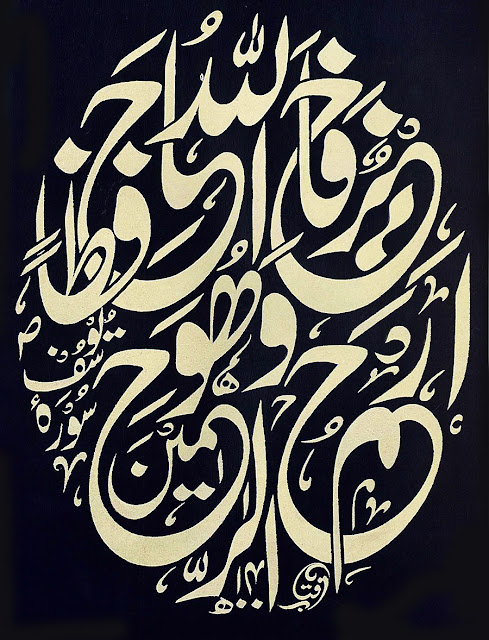 فَاللّٰهُ خَيْرٌ حَافِظًا
وَهُوَ اَرْحَمُ الرّٰحِمِيْنَ
سُوْرَۂ يُوسُفْ